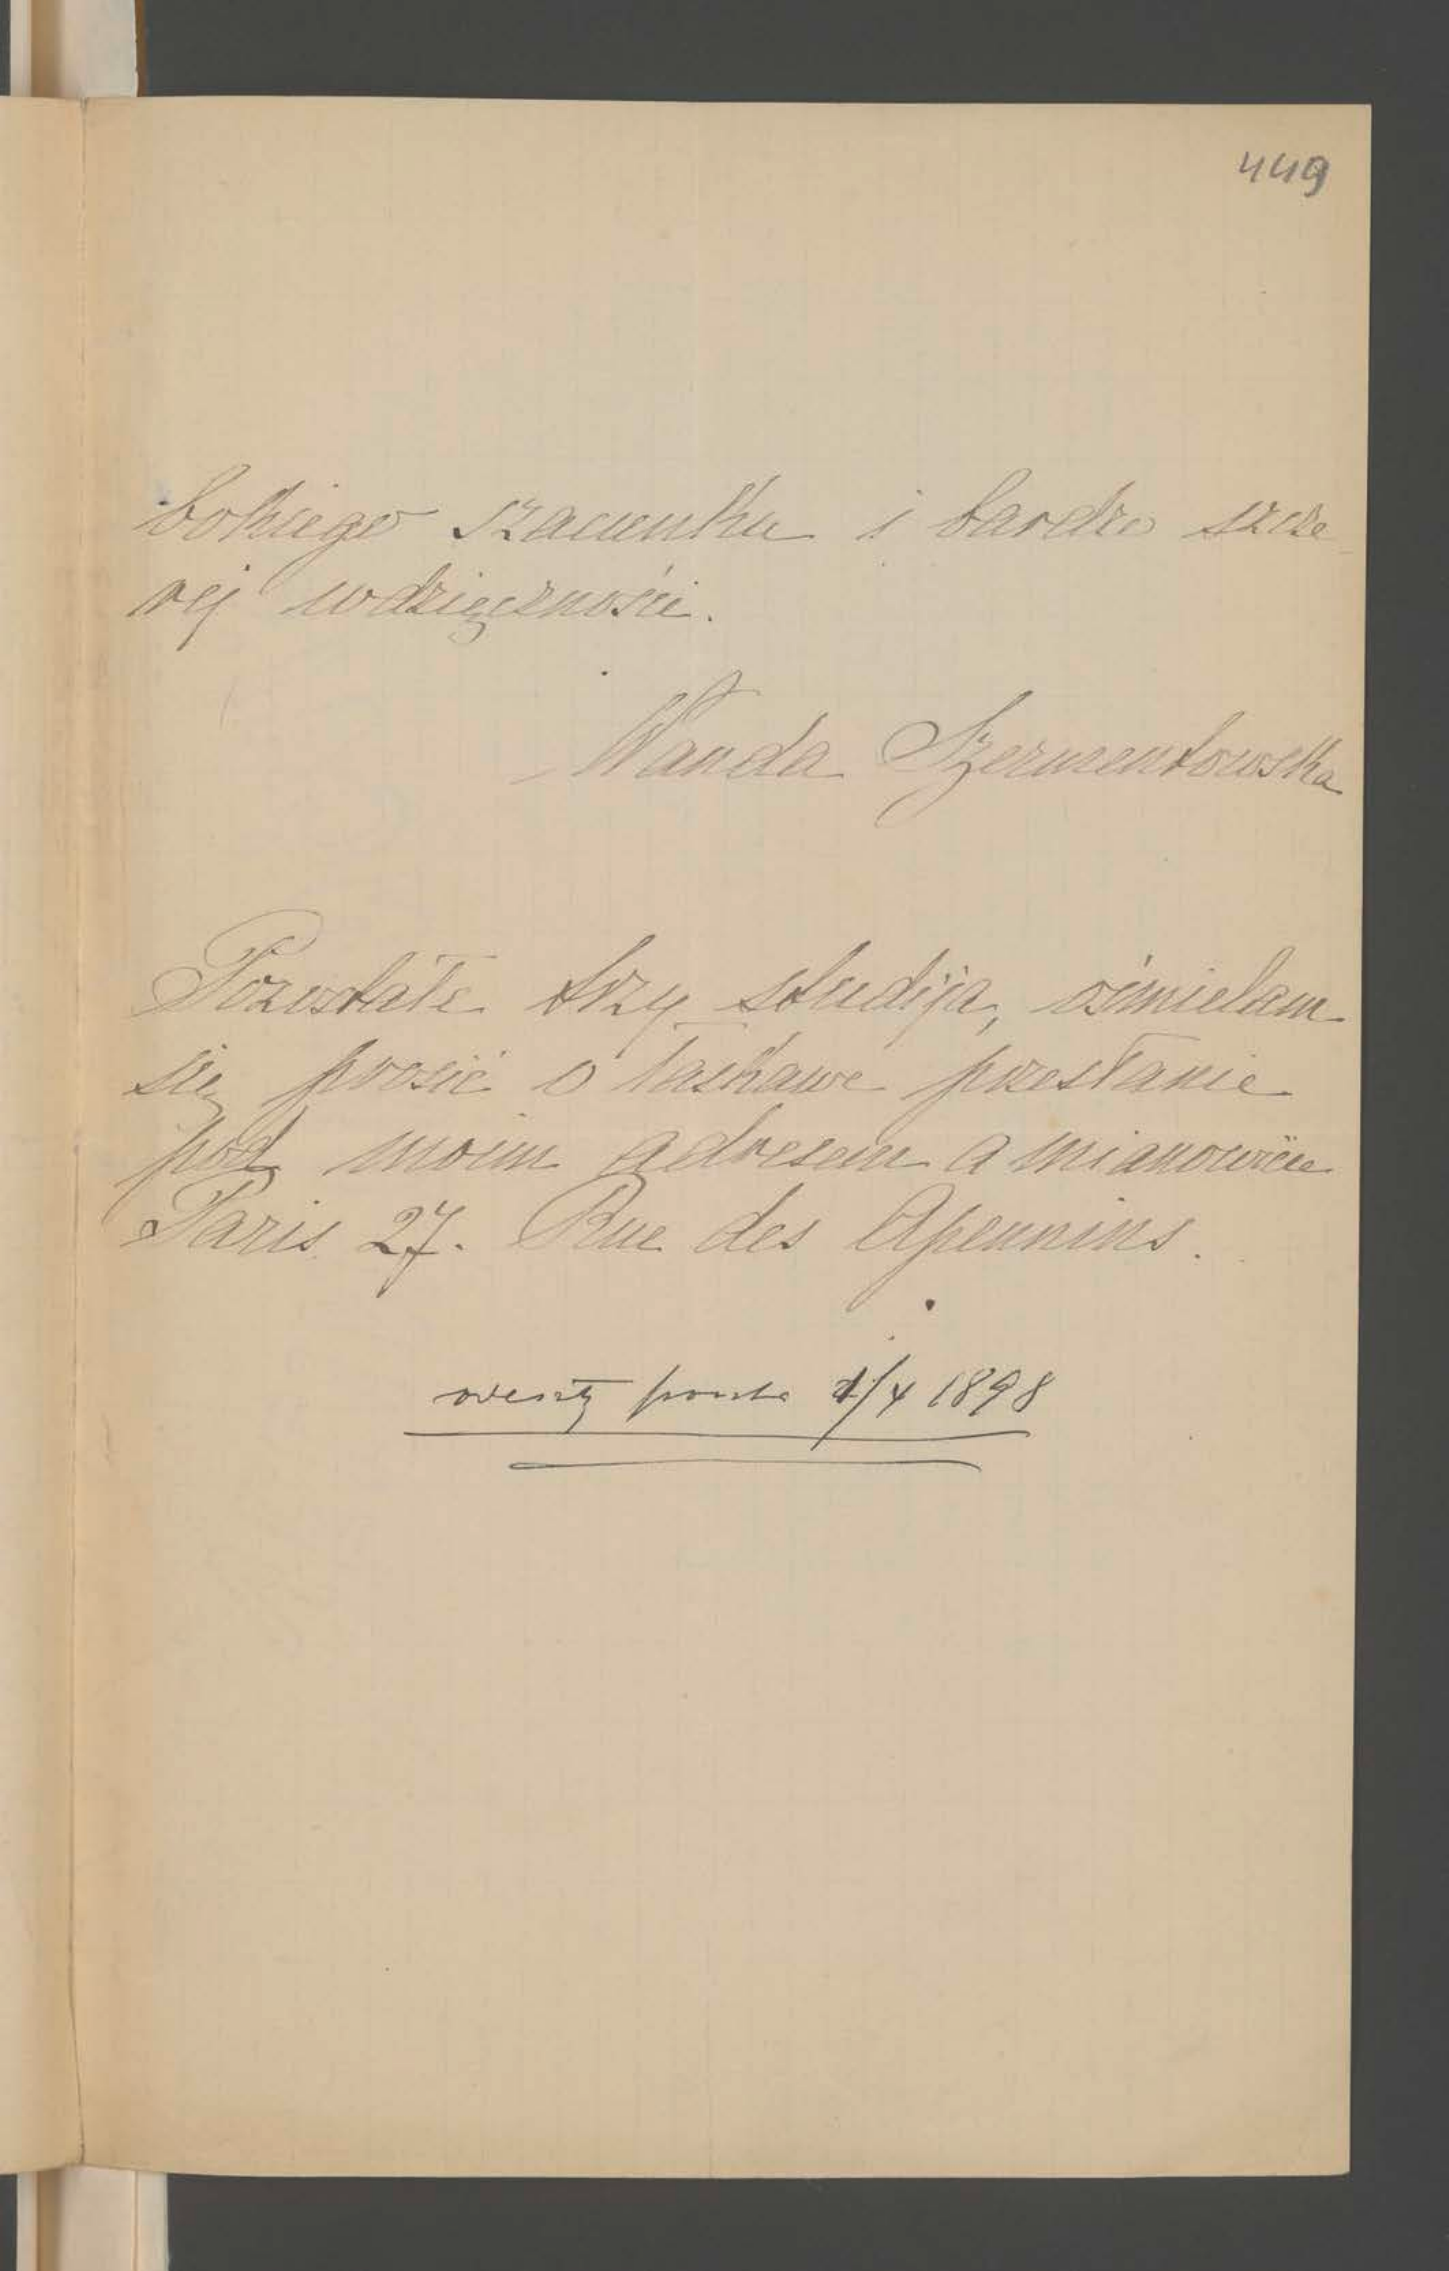 449
bokiego szacunku i bardzo szcze
rej wdzięczności.
Wanda Szermentowska
Pozostałe trzy studija, ośmielam
się prosić o łaskawe przesłanie
pod moim adresem a mianowicie
Paris 27. Rue des Apennins.
1/4 1898